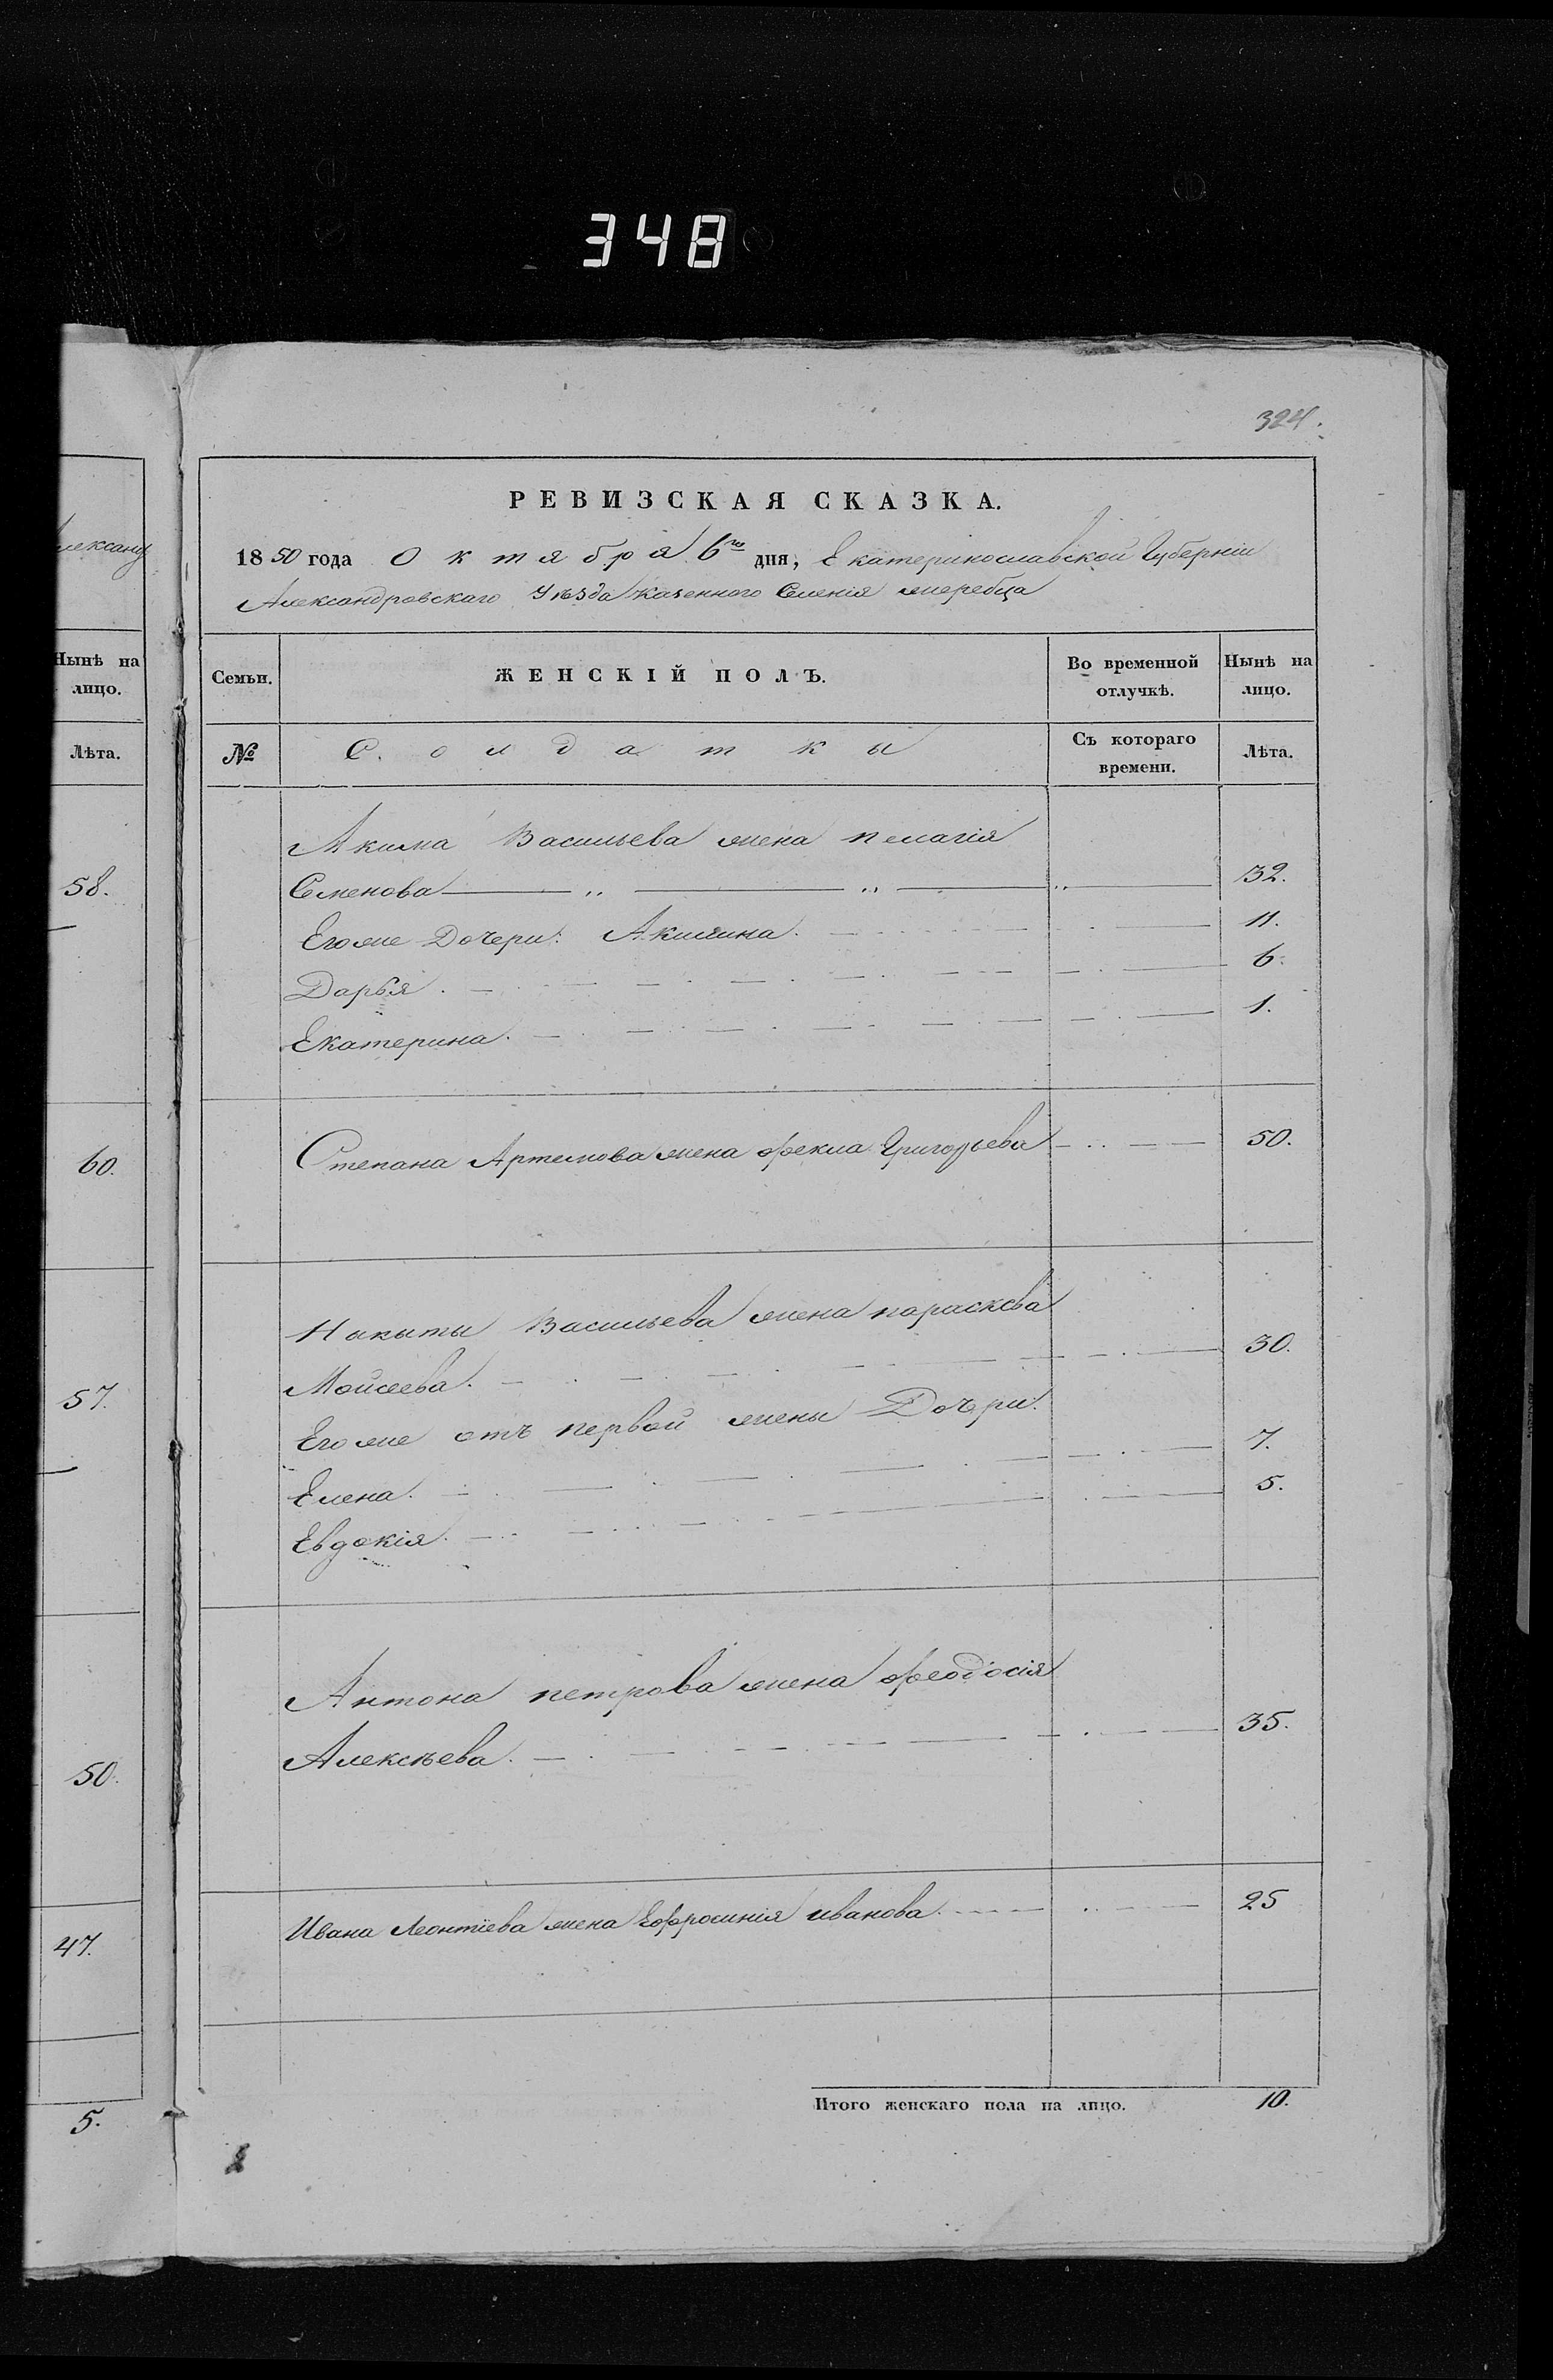 348
324.
Александ
Нынѣ на
лицо.
Лѣта.
58.
60.
57.
50.
47.
5.
РЕВИЗСКАЯ СКАЗКА.
1850 года Октября 6го дня, Екатеринославской Губерніи
Александровскаго Уѣзда казенного Селенія жеребца
Семьи.
ЖЕНСКІЙ ПОЛЪ.
Во временной
отлучкѣ.
Нынѣ на
лицо.
№
Солдатки
Съ котораго
времени.
Лѣта.
Акима Васильева жена пелагія
Семенова 32.
Егоже Дочери: Акилина. 11.
Дарья. 6.
Екатерина. 1.
Степана Артемова жена фекла Григорьева 50.
Никиты Васильева жена параскева
Мойсеева. 30.
Егоже отъ первой жены Дочери.
Елена. 7.
Евдокія. 5.
Антона петрова жена феодосія
Алексѣева. 35.
Ивана Леонтіева жена Ефросинія иванова. 25
Итого женскаго пола на лицо. 10.